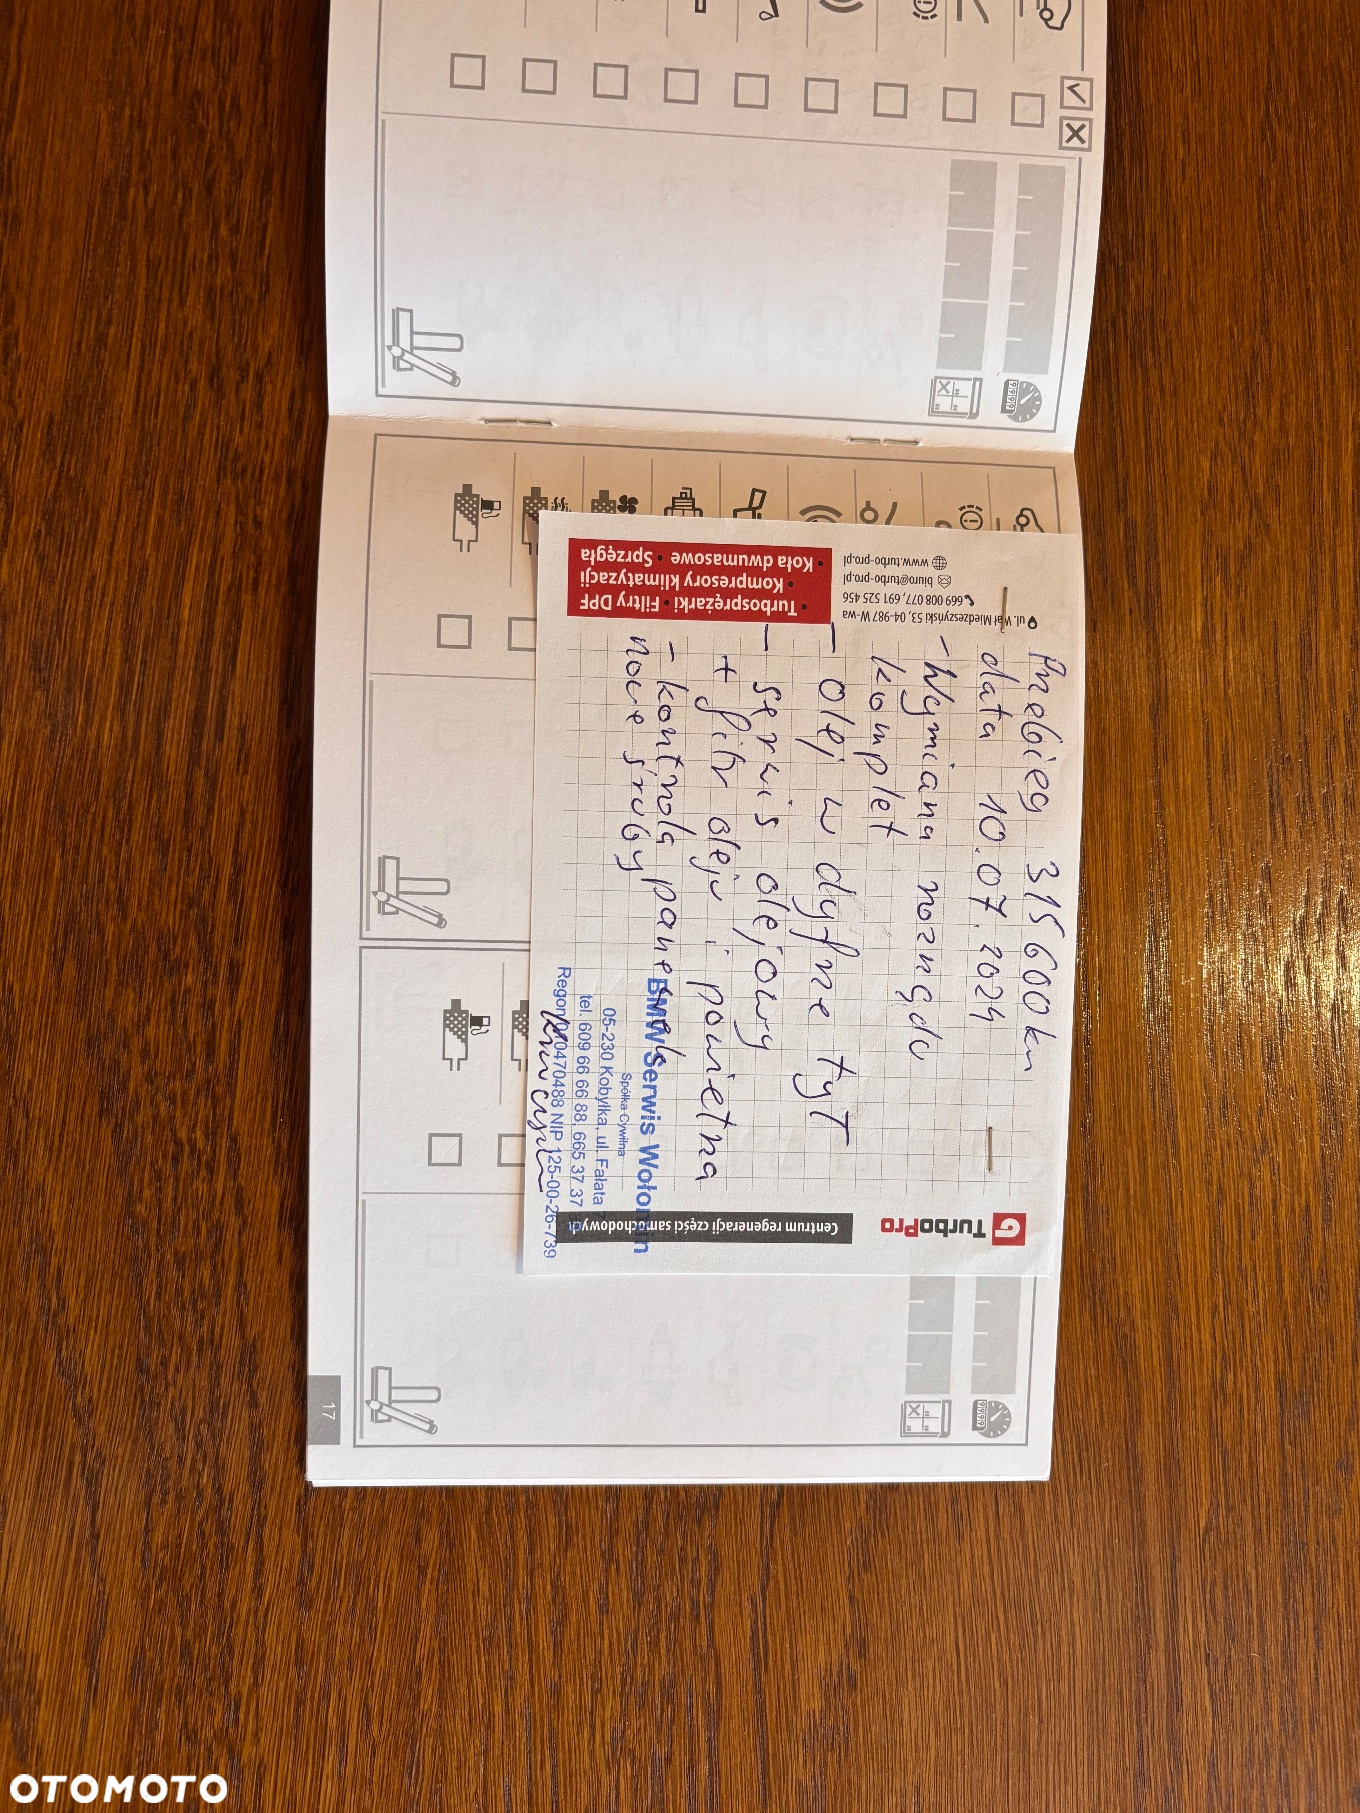 Przebieg 315 600 km
data 10.07.2024
- Wymiana rozrządu
komplet
- olej w dyfrze tyT
- serwis olejowy
+ filtr oleju i powietrza
- kontrola panewek
nowe śruby
BMW Serwis Wołomin
Spółka Cywilna
05-230 Kobyłka, ul. Fałata 7
tel. 609 66 66 88, 665 37 37
NIP 125-00-26-739
TurboPro
Centrum regeneracji części samochodowych
ul. Wał Miedzeszyński 53, 04-987 W-wa
669 008 077, 691 525 456
biuro@turbo-pro.pl
www.turbo-pro.pl
• Turbosprężarki • Filtry DPF
• Kompresory klimatyzacji
• Koła dwumasowe • Sprzęgła
17
OTOMOTO